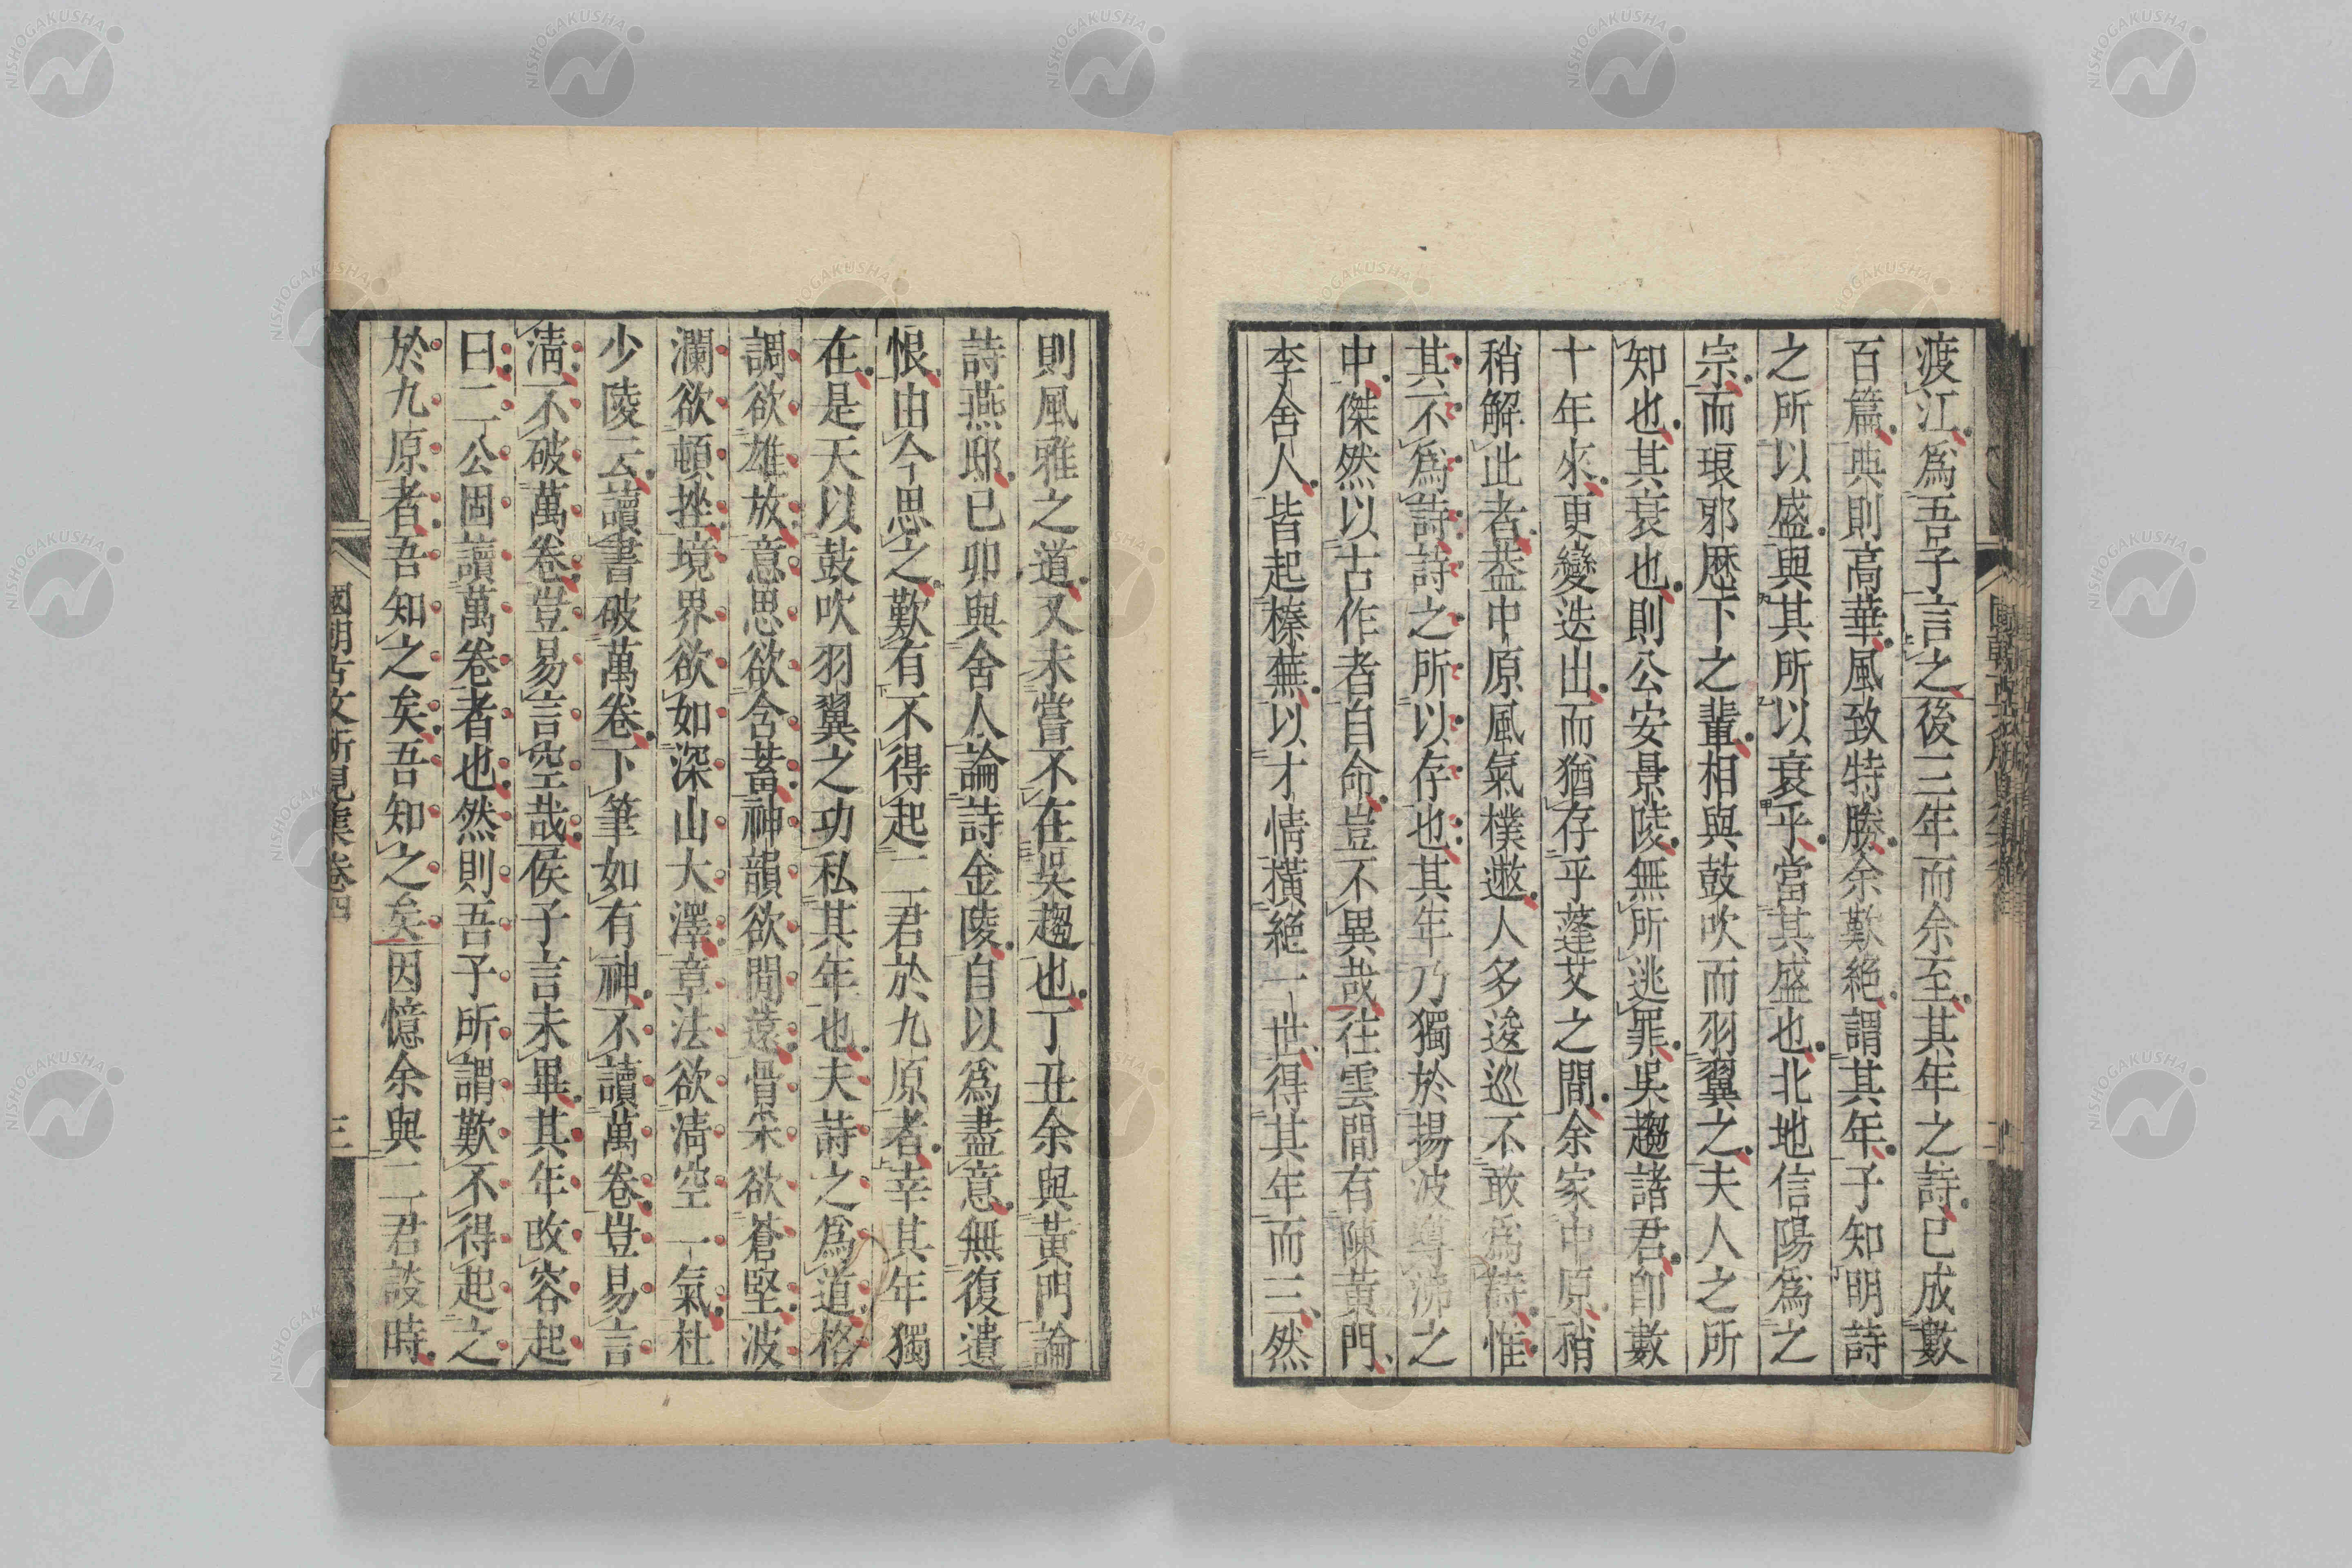 渡江爲吾子言之後三年而余至其年之詩已成數
百篇典則高華風致特勝余歎絕謂其年子知明詩
之所以盛與其所以衰乎當其盛也北地信陽爲之
宗而琅邪歷下之輩相與鼓吹而羽翼之夫人之所
知也其衰也則公安景陵無所逃罪吳趨諸君卽數
十年來更變迭出而猶存乎蓬艾之間余家中原稍
稍解此者葢中原風氣樸遬人多逡巡不敢爲詩惟
其不爲詩詩之所以存也其年乃獨於揚波導沸之
中傑然以古作者自命豈不異哉往雲間有陳黃門
李舍人皆起榛蕪以才情橫絕一世得其年而三然
則風雅之道又未嘗不在吳趨也丁丑余與黃門論
詩燕邸已卯與舍人論詩金陵自以爲盡意無復遺
恨由今思之歎有不得起二君於九原者幸其年獨
在是天以鼓吹羽翼之功私其年也夫詩之爲道格
調欲雄放意思欲含蓄神韻欲閒遠骨采欲蒼堅波
瀾欲頓挫境界欲如深山大澤章法欲淸空一氣杜
少陵云讀書破萬卷下筆如有神不讀萬卷豈易言
淸不破萬卷豈易言空哉侯子言未畢其年改容起
曰二公固讀萬卷者也然則吾子所謂歎不得起之
於九原者吾知之矣吾知之矣因憶余與二君談時
國朝古文所見集卷四
三
NISHOGAKUSHA